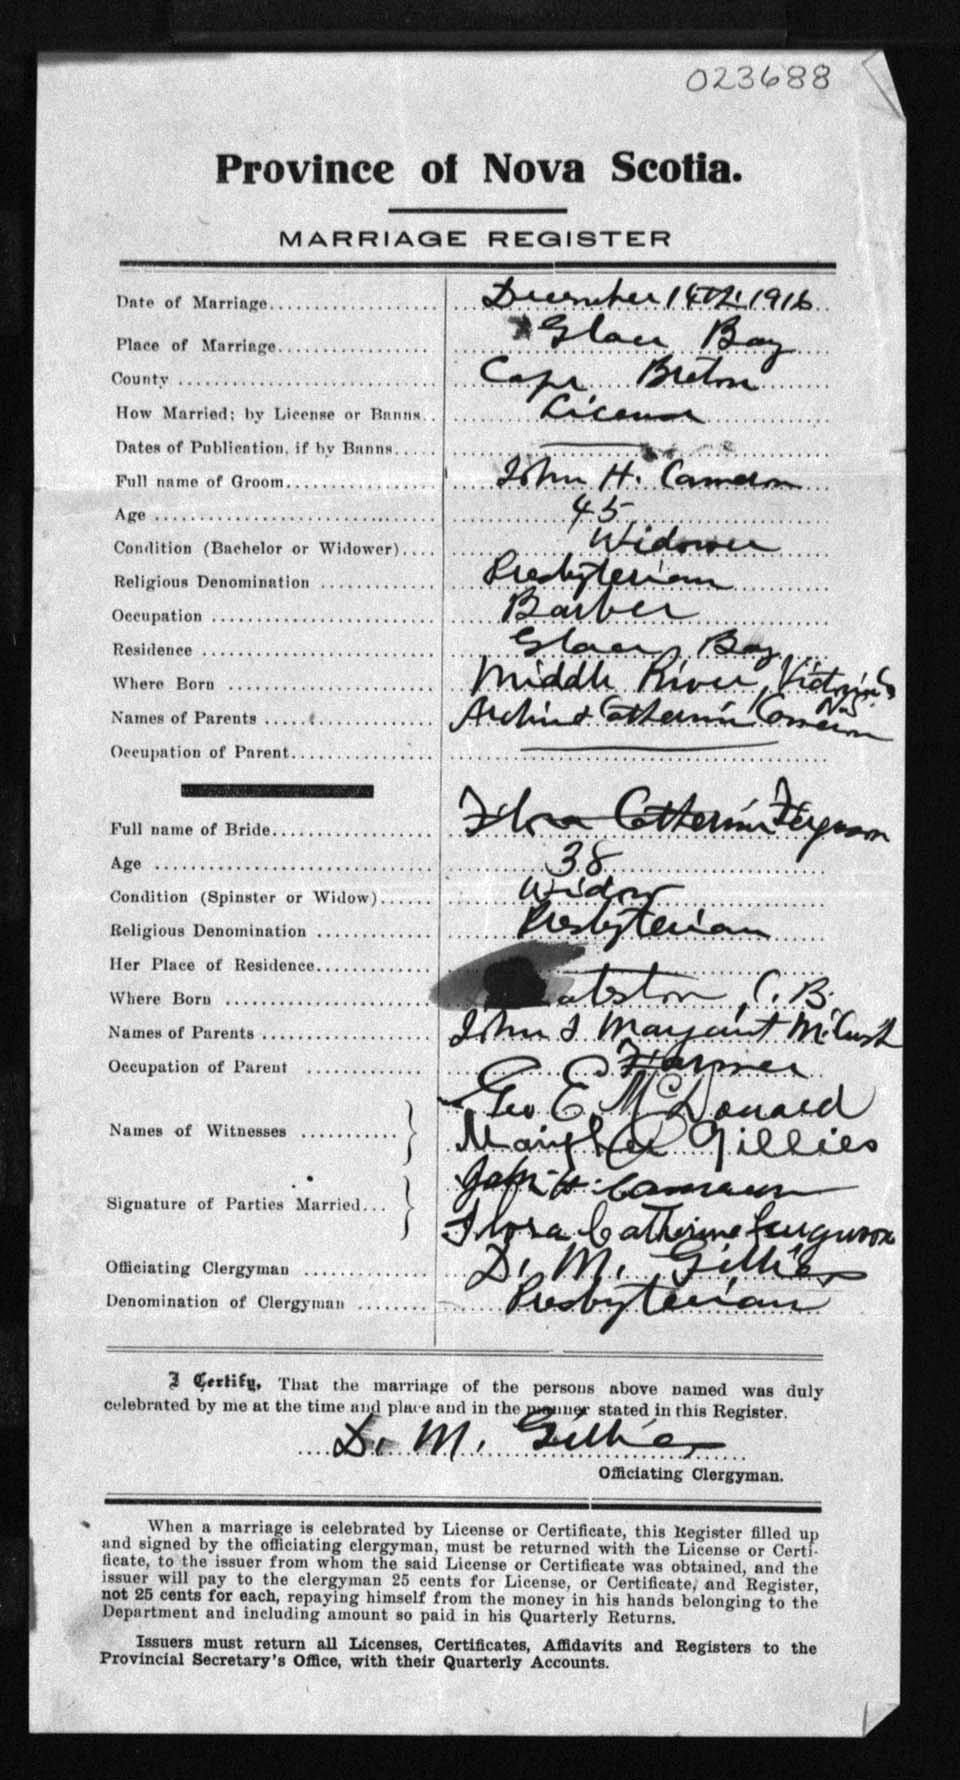 023688
Province of Nova Scotia.
MARRIAGE REGISTER
Date of Marriage December 14th 1916
Place of Marriage Glace Bay
County Cape Breton
How Married; by License or Banns License
Dates of Publication, if by Banns
Full name of Groom John H. Cameron
Age 45
Condition (Bachelor or Widower) Widower
Religious Denomination Presbyterian
Occupation Barber
Residence Glace Bay
Where Born Middle River, Victoria Co N.S.
Names of Parents Archie & Catherine Cameron
Occupation of Parent
Full name of Bride Flora Catherine Ferguson
Age 38
Condition (Spinster or Widow) Widow
Religious Denomination Presbyterian
Her Place of Residence
Where Born C. B.
Names of Parents John & Margaret
Occupation of Parent Farmer
Names of Witnesses Geo E. McDonald
Gillies
Signature of Parties Married John H. Cameron
Flora Catherine Ferguson
Officiating Clergyman D. M. Gillies
Denomination of Clergyman Presbyterian
I Certify, That the marriage of the persons above named was duly
celebrated by me at the time and place and in the manner stated in this Register.
D. M. Gillies
Officiating Clergyman.
When a marriage is celebrated by License or Certificate, this Register filled up
and signed by the officiating clergyman, must be returned with the License or Certi-
ficate, to the issuer from whom the said License or Certificate was obtained, and the
issuer will pay to the clergyman 25 cents for License, or Certificate, and Register,
not 25 cents for each, repaying himself from the money in his hands belonging to the
Department and including amount so paid in his Quarterly Returns.
Issuers must return all Licenses, Certificates, Affidavits and Registers to the
Provincial Secretary's Office, with their Quarterly Accounts.